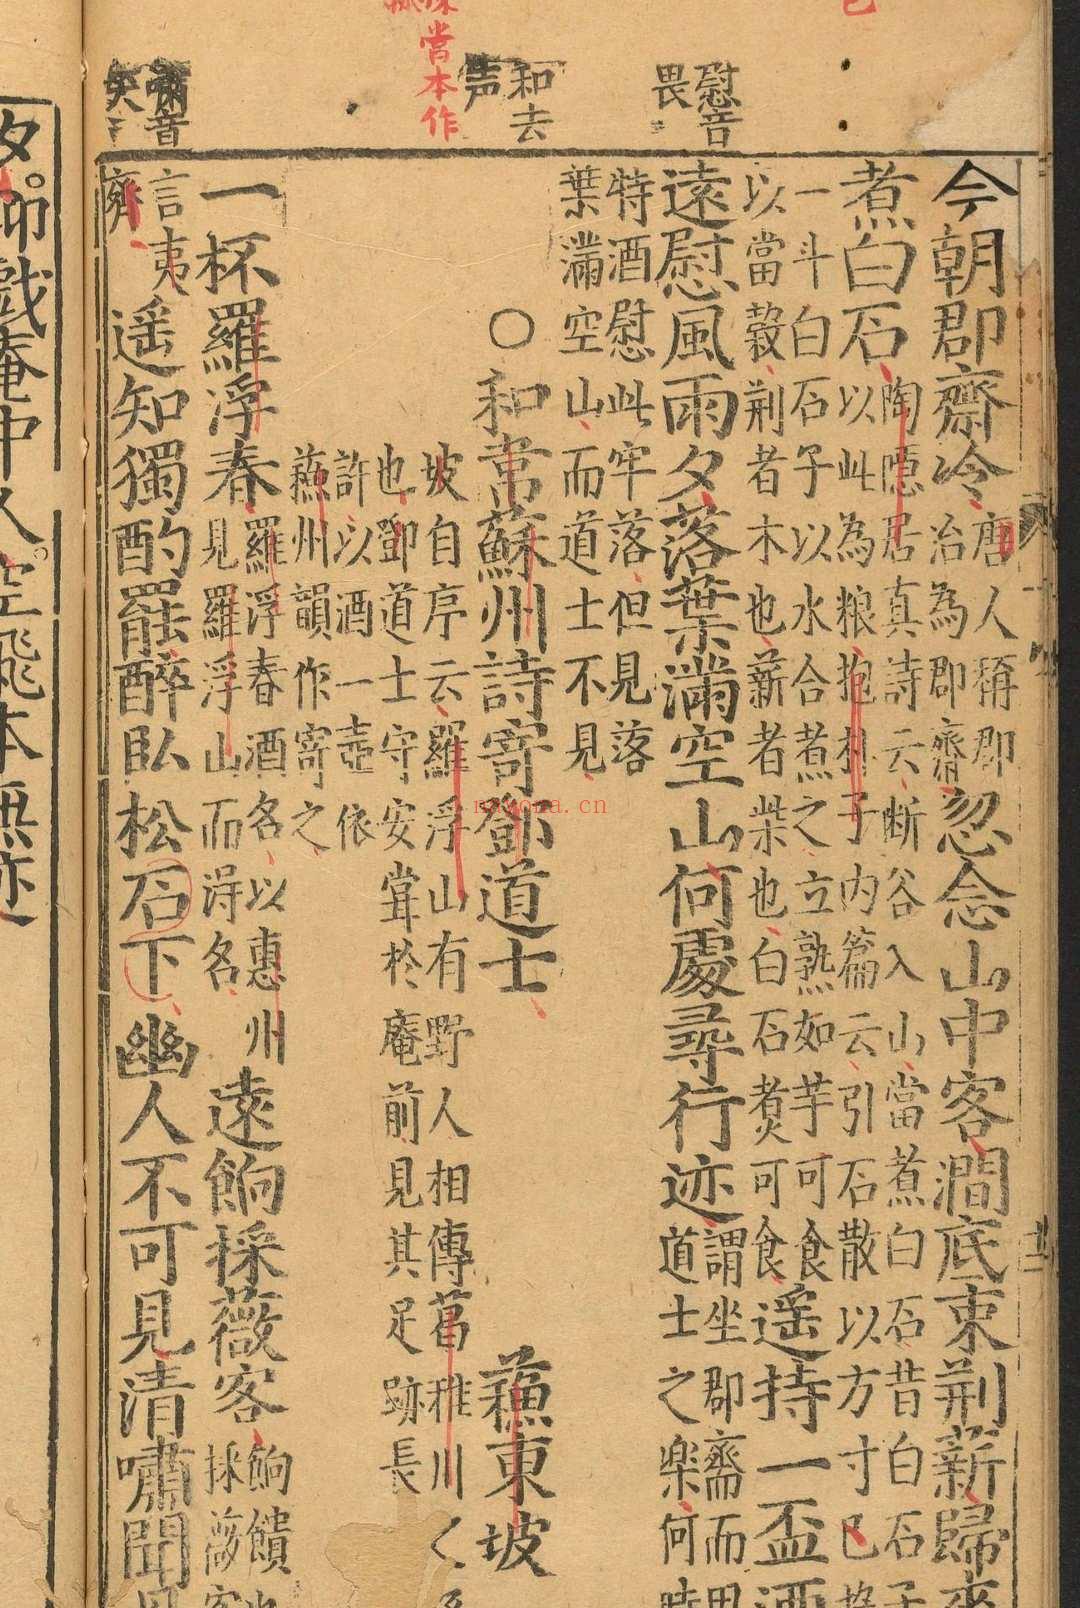 慰音
畏
和去
声
嘯音
甞本作
今朝郡齋冷
唐人稱郡
治為郡齋
忽念山中客澗底束荆薪歸來
煮白石
陶隱居真詩云断谷入山當煮白石昔白石子
以此為粮抱朴子内篇云引石散以方寸匕
一斗白石子以水合煮之立熟如芋可食
以當穀荆者木也薪者柴也白石煑可食
遥持一盃酒
遠慰風雨夕落葉滿空山何處尋行迹
謂坐郡齋而思
道士之楽何時
特酒慰此牢落但見落
葉滿空山而道士不見
○和韋蘇州詩寄鄧道士
蘓東坡
坡自序云羅浮山有野人相傳葛稚川之
也鄧道士守安甞於庵前見其足跡長
許以酒一壺依
蘓州韻作寄之
一杯羅浮春
羅浮春酒名以惠州
見羅浮山而得名
遠餉採薇客
餉饋也
採薇客
言夷
齊
遥知獨酌罷醉臥松石下幽人不可見清嘯聞月
夕聊戲庵中人空飛本無迹
nayona.cn